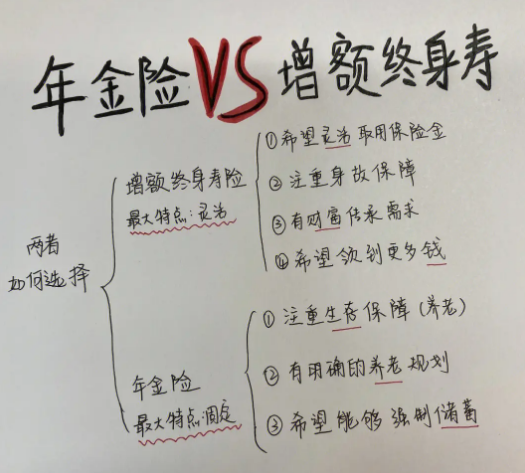 年金险VS增额终身寿
两者
如何选择
增额终身寿险
最大特点:灵活
①希望灵活取用保险金
②注重身故保障
③有财富传承需求
④希望领到更多钱
年金险
最大特点:固定
①注重生存保障(养老)
②有明确的养老规划
③希望能够强制储蓄